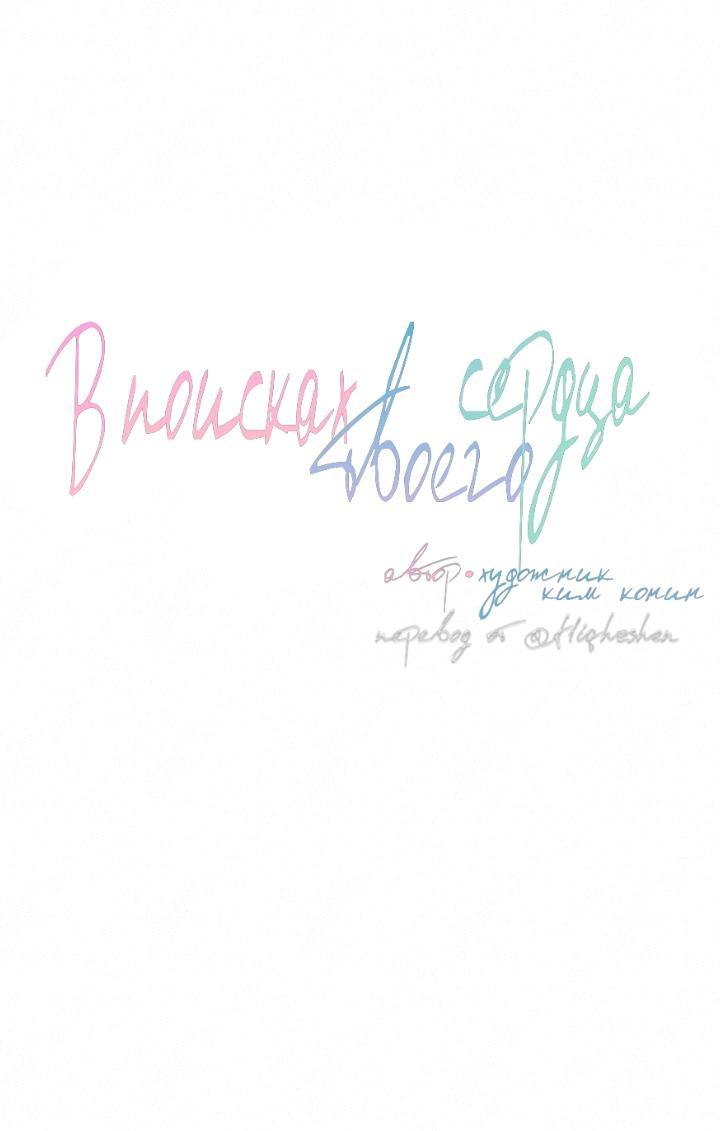 В поисках
твоего
сердца
автор • художник
ким конин
перевод от @Higheshen